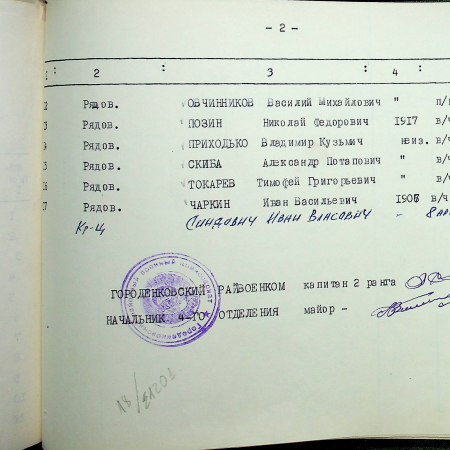 - 2 -
1 : 2 : 3 : 4 :
2 Рядов. ОВЧИННИКОВ Василий Михайлович " п/
3 Рядов. ПОЗИН Николай Федорович 1917 в/ч
4 Рядов. ПРИХОДЬКО Владимир Кузьмич неиз. в/ч
5 Рядов. СКИБА Александр Потапович " в/ч
6 Рядов. ТОКАРЕВ Тимофей Григорьевич " в/ч
7 Рядов. ЧАРКИН Иван Васильевич 1906 в/ч
Кр-ц Синдович Иван Власович -
ГОРОДЕНКОВСКИЙ РАЙВОЕНКОМ капитан 2 ранга
НАЧАЛЬНИК 4-ГО ОТДЕЛЕНИЯ майор -